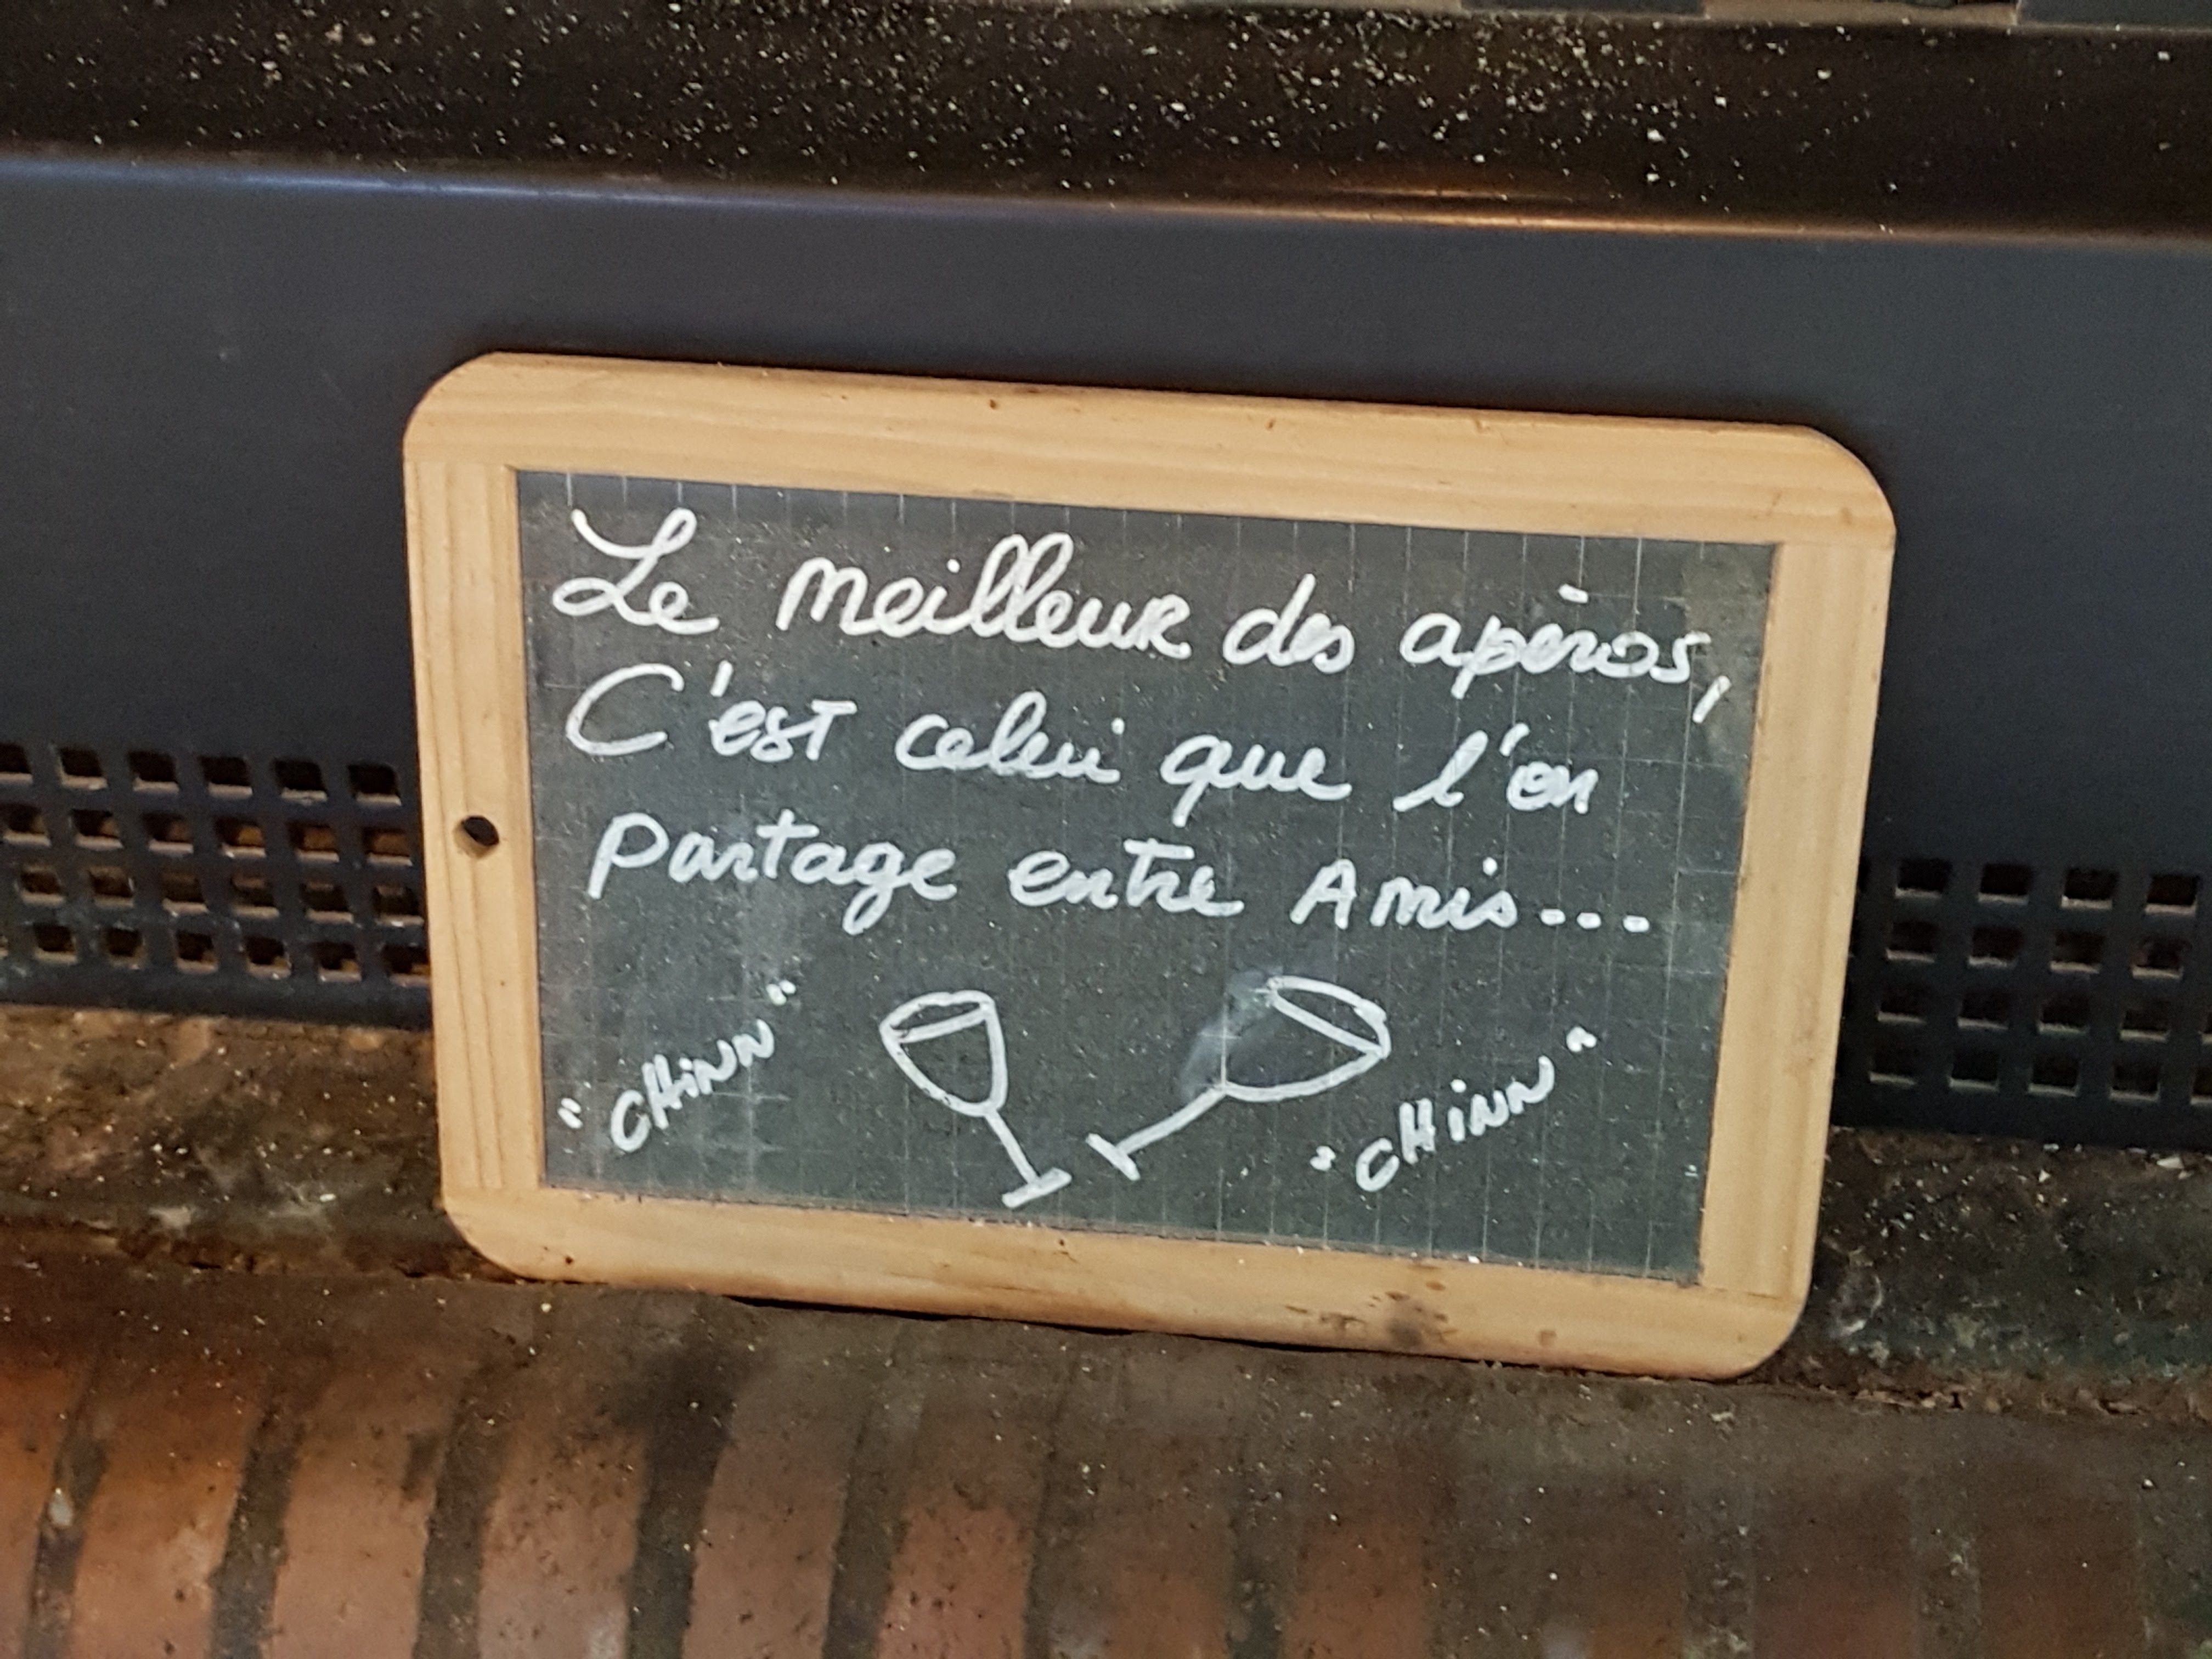 Le meilleur des apèros,
C'est celui que l'on
partage entre Amis...
"CHiNN"
"CHiNN"